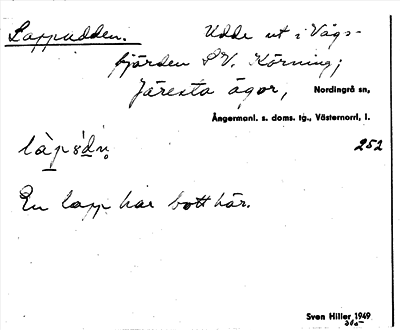 Lappudden. Udde ut i Vågs-
fjärden SV. Körning;
Järesta ägor, Nordingrå sn,
Ångermanl. s. doms. tg., Västernorrl. l.
252
En lapp har bott här.
Sven Hiller 1949